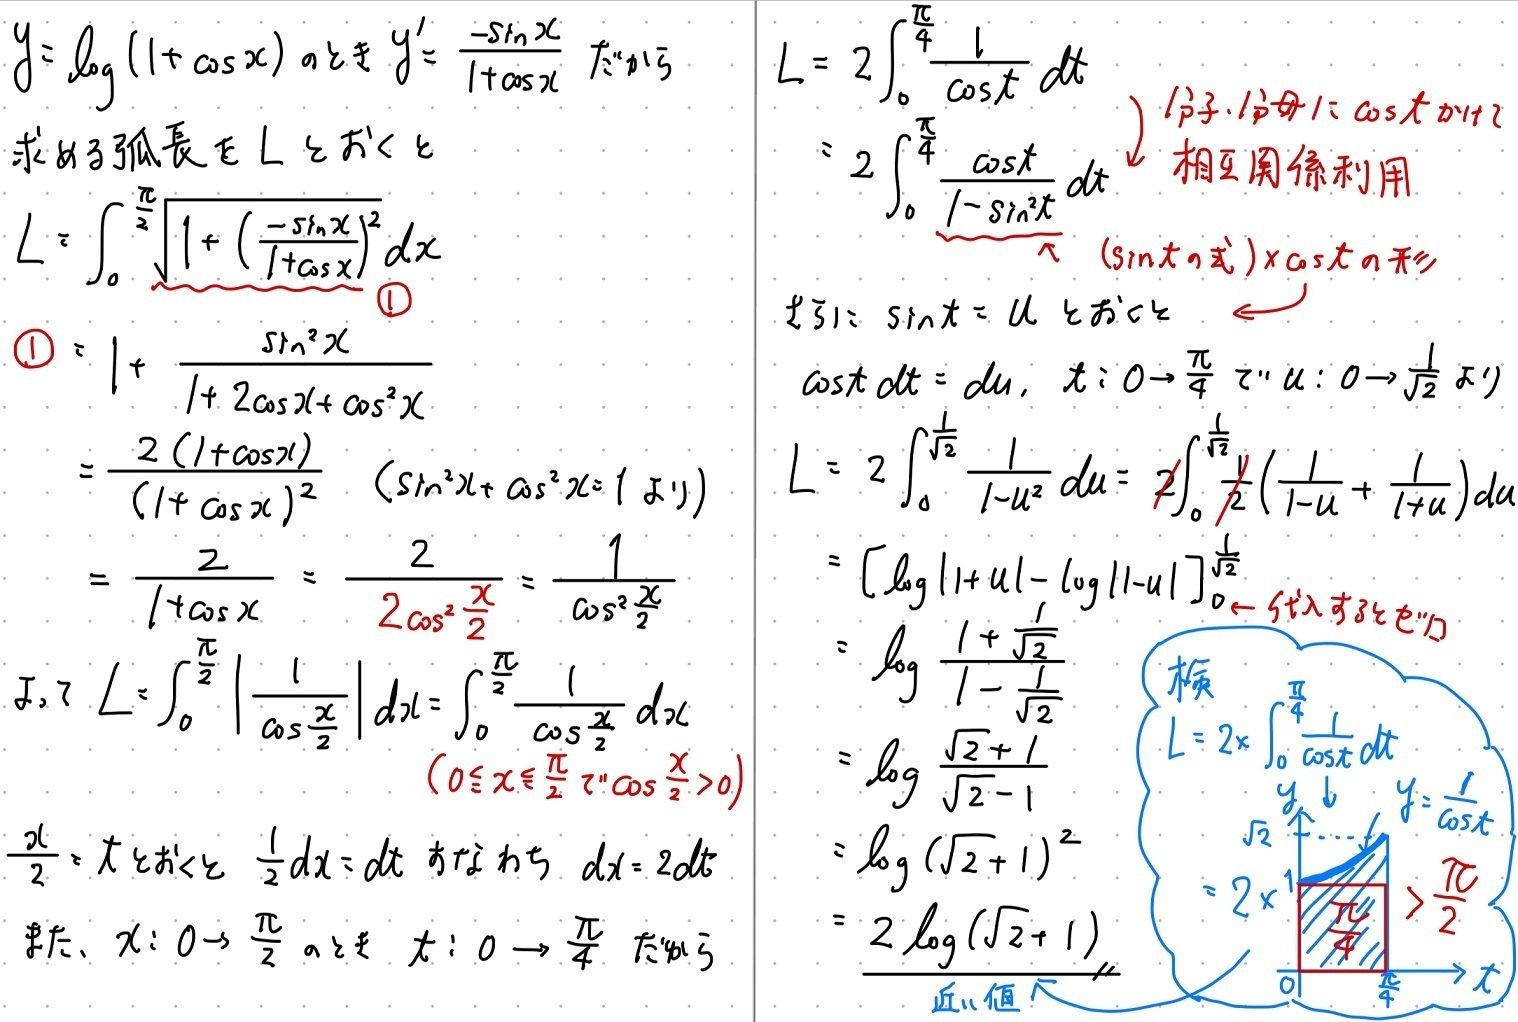 y = log(1+cosx) のとき y' = \frac{-sinx}{1+cosx} だから
求める弧長を L とおくと
L = \int_0^{\frac{π}{2}} \sqrt{1+(\frac{-sinx}{1+cosx})^2} dx
①
① = 1 + \frac{sin²x}{1+2cosx+cos²x}
= \frac{2(1+cosx)}{(1+cosx)^2} (sin²x+cos²x=1 より)
= \frac{2}{1+cosx} = \frac{2}{2cos²\frac{x}{2}} = \frac{1}{cos²\frac{x}{2}}
よって L = \int_0^{\frac{π}{2}} |\frac{1}{cos\frac{x}{2}}| dx = \int_0^{\frac{π}{2}} \frac{1}{cos\frac{x}{2}} dx
(0≦x≦\frac{π}{2} で cos\frac{x}{2}>0)
\frac{x}{2} = t とおくと \frac{1}{2}dx = dt すなわち dx = 2dt
また、x : 0→\frac{π}{2} のとき t : 0→\frac{π}{4} だから
L = 2\int_0^{\frac{π}{4}} \frac{1}{cost} dt
分子・分母に cost かけて
相互関係利用
= 2\int_0^{\frac{π}{4}} \frac{cost}{1-sin²t} dt
(sintの式)×costの形
さらに sint = u とおくと
costdt = du, t : 0→\frac{π}{4} で u : 0→\frac{1}{√2} より
L = 2\int_0^{\frac{1}{√2}} \frac{1}{1-u²} du = 2\int_0^{\frac{1}{√2}} \frac{1}{2}(\frac{1}{1-u}+\frac{1}{1+u})du
= [log|1+u|-log|1-u|]_0^{\frac{1}{√2}} ← 代入するとゼロ
= log \frac{1+\frac{1}{√2}}{1-\frac{1}{√2}}
= log \frac{√2+1}{√2-1}
= log(√2+1)²
= 2log(√2+1)
近い値
検
L = 2×\int_0^{\frac{π}{4}} \frac{1}{cost} dt
y ↓ y = \frac{1}{cost}
√2
= 2× 1 \frac{π}{4} > \frac{π}{2}
0 \frac{π}{4} t